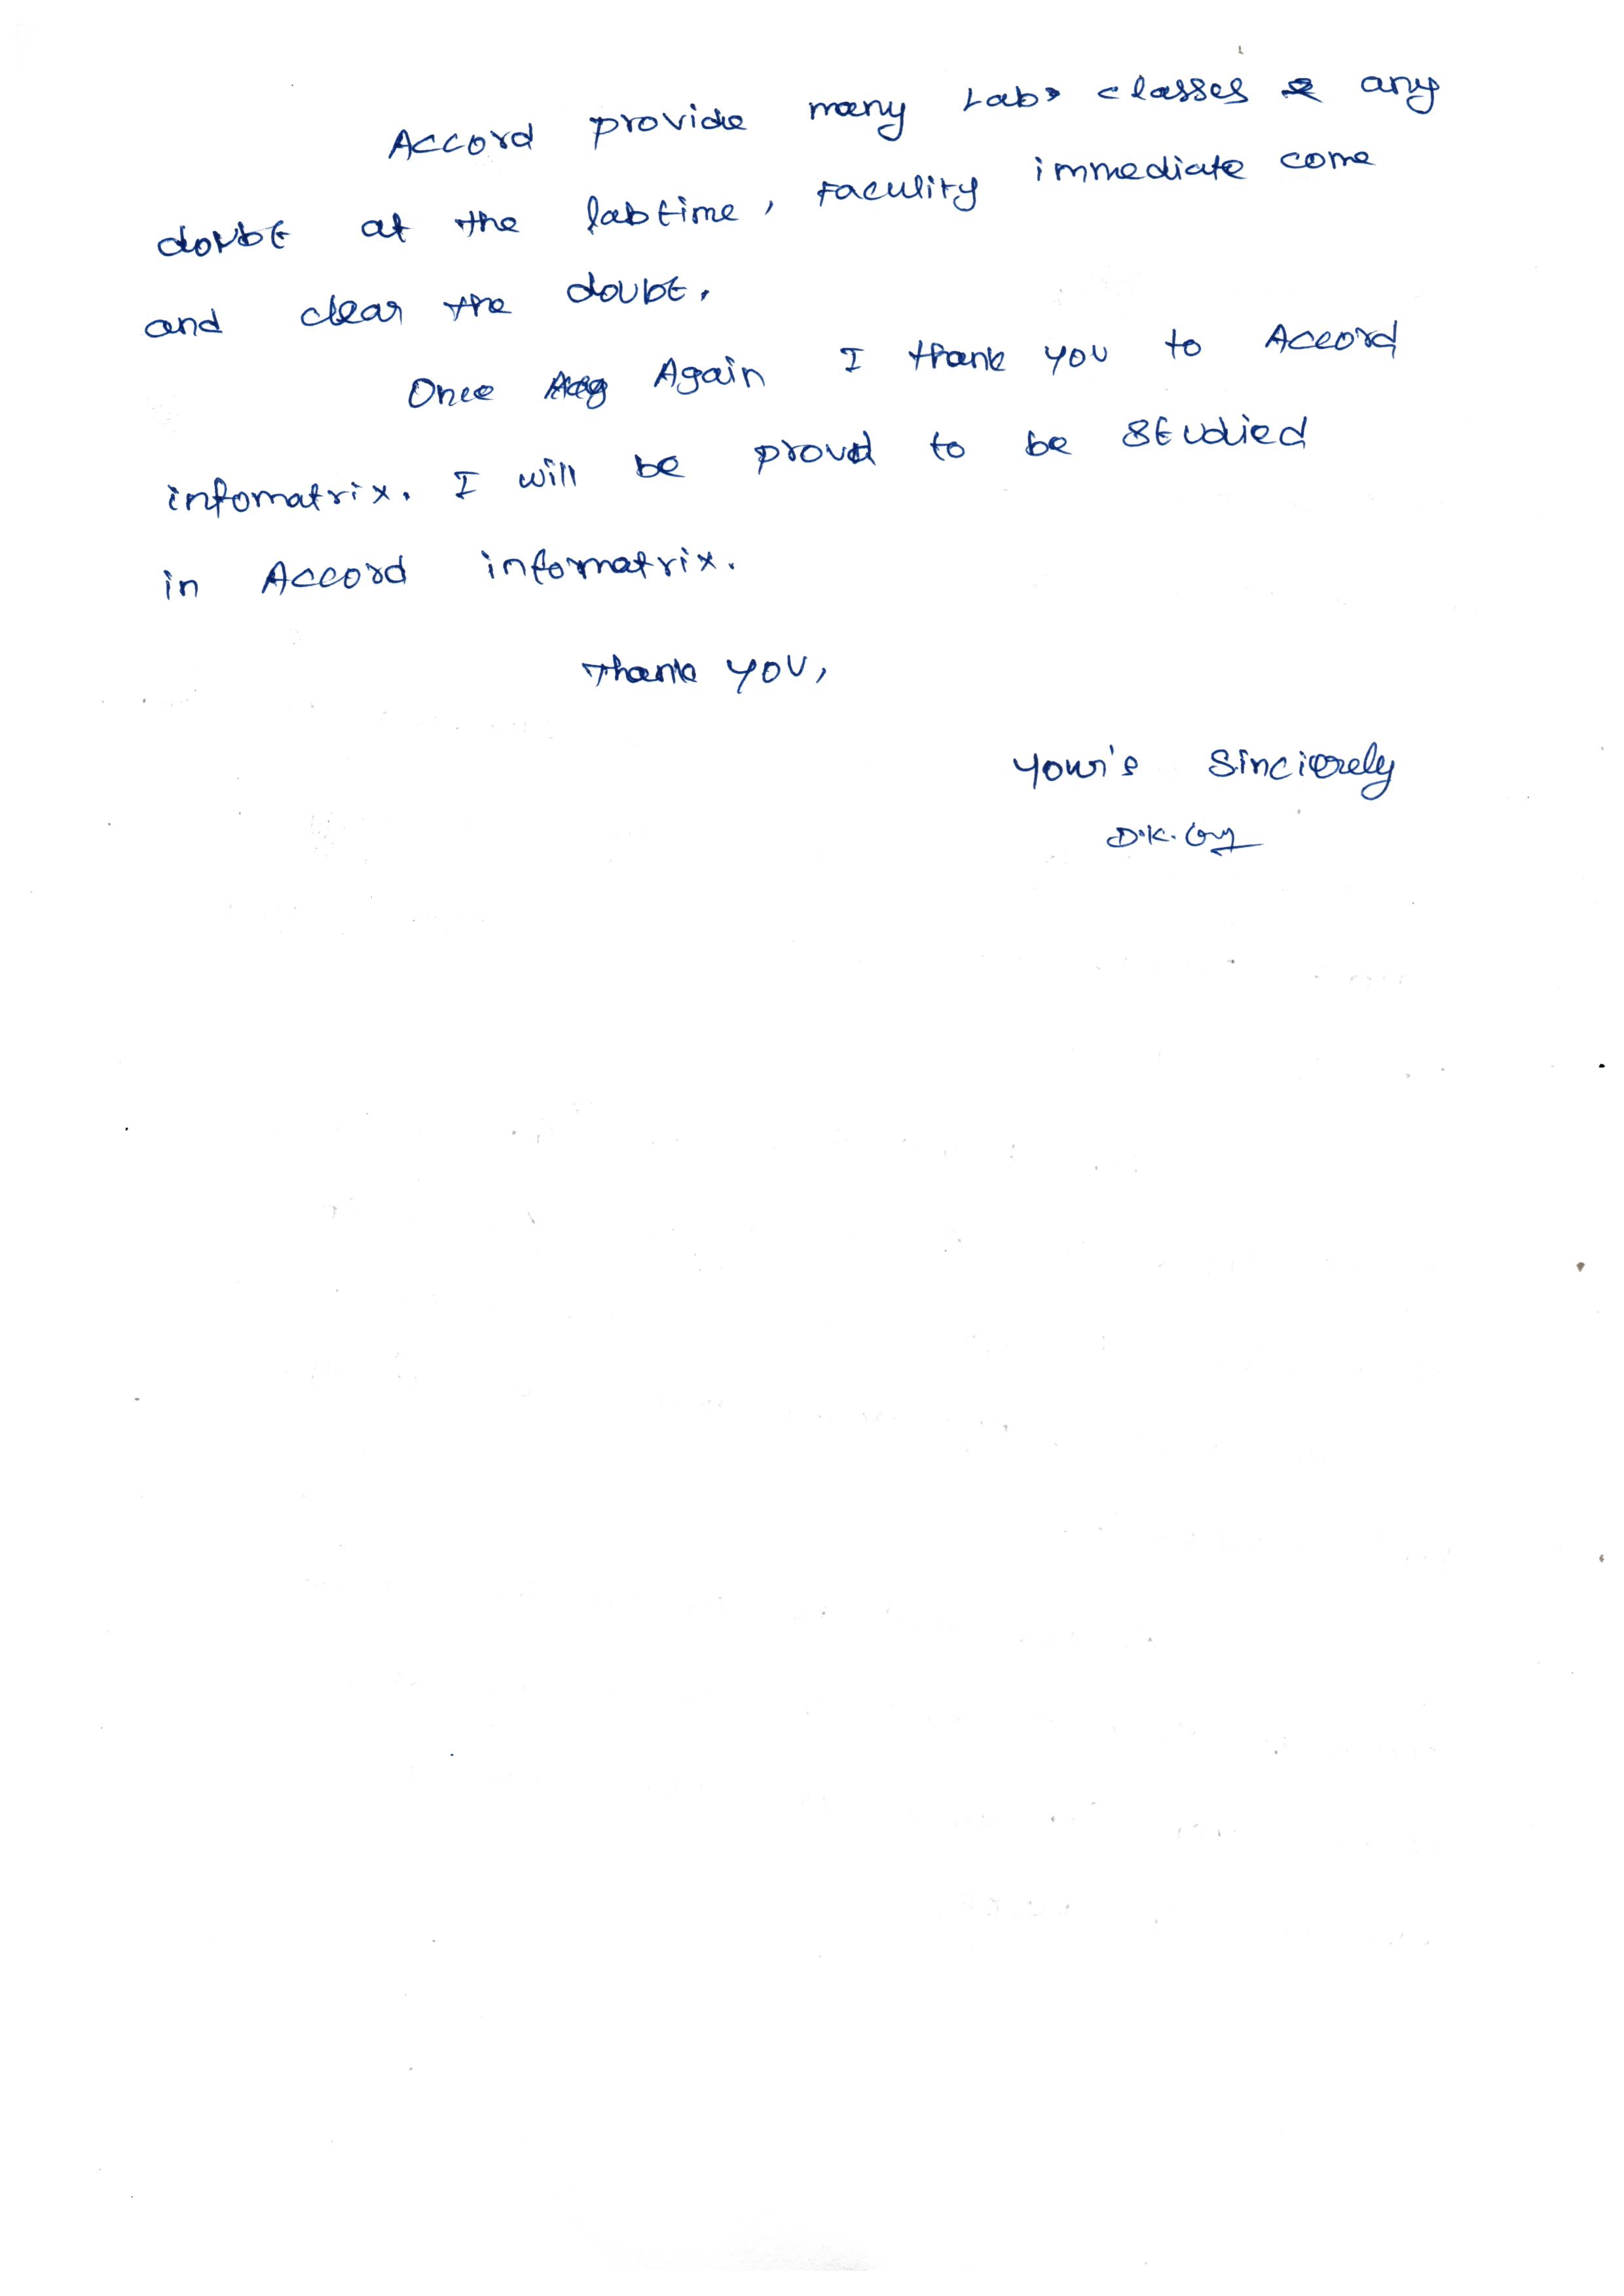 Accord provide many Labs classes & any
doubt at the labtime, Faculity immediate come
and clear the doubt.
Once Again I thank you to Accord
infomatrix. I will be proud to be Studied
in Accord informatrix.
Thank you,
Your's Sincierely
D.K.